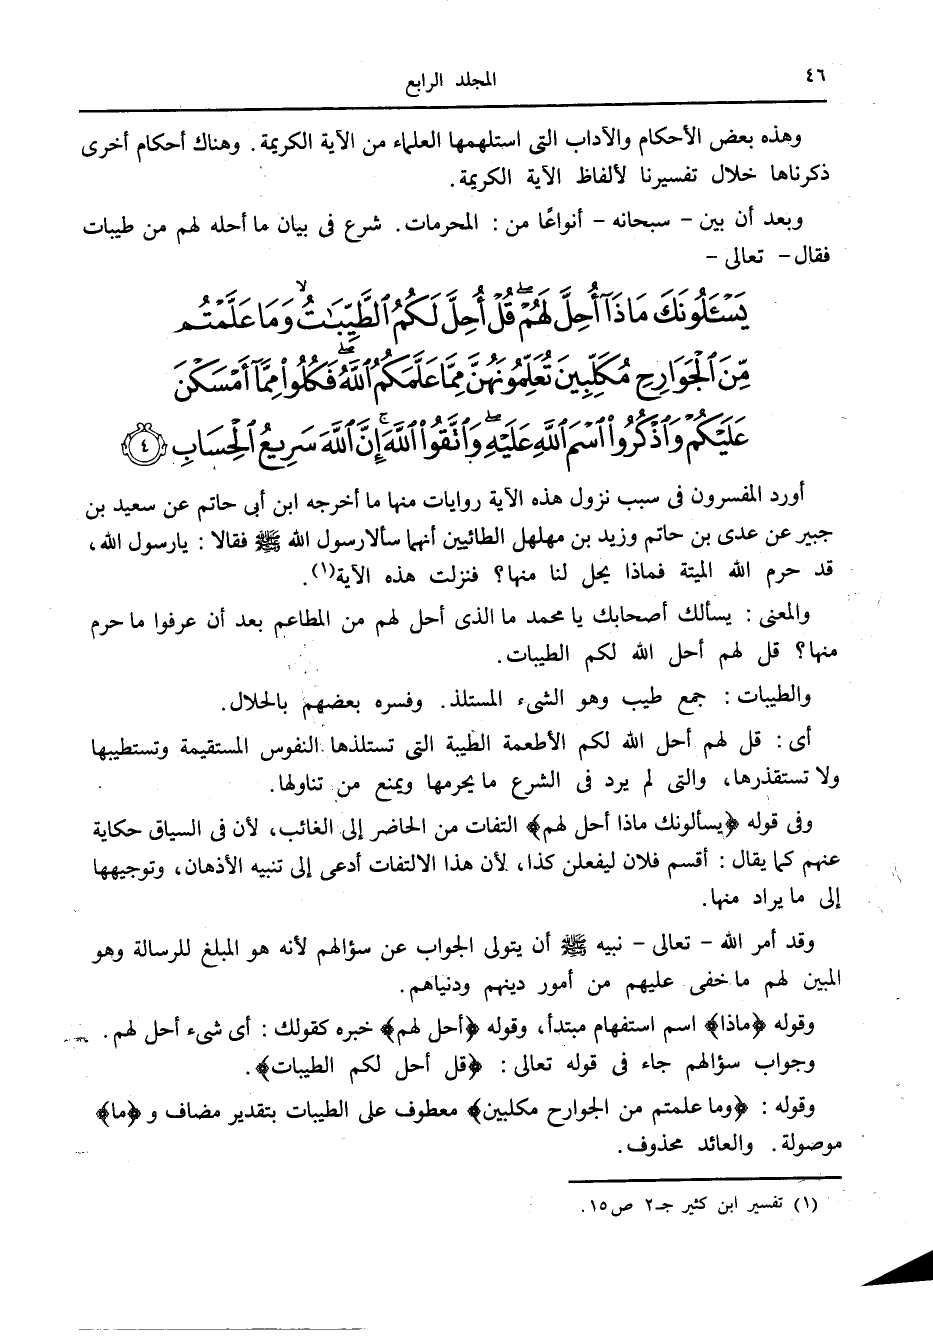 ٤٦
المجلد الرابع
وهذه بعض الأحكام والآداب التى استلهمها العلماء من الآية الكريمة. وهناك أحكام أخرى
ذكرناها خلال تفسيرنا لألفاظ الآية الكريمة.
وبعد أن بين – سبحانه – أنواعًا من : المحرمات. شرع فى بيان ما أحله لهم من طيبات
فقال – تعالى –
يَسْـَٔلُونَكَ مَاذَآ أُحِلَّ لَهُمْ ۖ قُلْ أُحِلَّ لَكُمُ ٱلطَّيِّبَـٰتُ ۙ وَمَا عَلَّمْتُم
مِّنَ ٱلْجَوَارِحِ مُكَلِّبِينَ تُعَلِّمُونَهُنَّ مِمَّا عَلَّمَكُمُ ٱللَّهُ ۖ فَكُلُوا۟ مِمَّآ أَمْسَكْنَ
عَلَيْكُمْ وَٱذْكُرُوا۟ ٱسْمَ ٱللَّهِ عَلَيْهِ ۖ وَٱتَّقُوا۟ ٱللَّهَ ۚ إِنَّ ٱللَّهَ سَرِيعُ ٱلْحِسَابِ ﴿٤﴾
أورد المفسرون فى سبب نزول هذه الآية روايات منها ما أخرجه ابن أبى حاتم عن سعيد بن
جبير عن عدى بن حاتم وزيد بن مهلهل الطائيين أنهما سألا رسول الله ﷺ فقالا : يارسول الله،
قد حرم الله الميتة فماذا يحل لنا منها؟ فنزلت هذه الآية(١).
والمعنى : يسألك أصحابك يا محمد ما الذى أحل لهم من المطاعم بعد أن عرفوا ما حرم
منها؟ قل لهم أحل الله لكم الطيبات.
والطيبات : جمع طيب وهو الشىء المستلذ. وفسره بعضهم بالحلال.
أى : قل لهم أحل الله لكم الأطعمة الطيبة التى تستلذها النفوس المستقيمة وتستطيبها
ولا تستقذرها، والتى لم يرد فى الشرع ما يحرمها ويمنع من تناولها.
وفى قوله ﴿يسألونك ماذا أحل لهم﴾ التفات من الحاضر إلى الغائب، لأن فى السياق حكاية
عنهم كما يقال : أقسم فلان ليفعلن كذا، لأن هذا الالتفات أدعى إلى تنبيه الأذهان، وتوجيهها
إلى ما يراد منها.
وقد أمر الله – تعالى – نبيه ﷺ أن يتولى الجواب عن سؤالهم لأنه هو المبلغ للرسالة وهو
المبين لهم ما خفى عليهم من أمور دينهم ودنياهم.
وقوله ﴿ماذا﴾ اسم استفهام مبتدأ، وقوله ﴿أحل لهم﴾ خبره كقولك : أى شىء أحل لهم.
وجواب سؤالهم جاء فى قوله تعالى : ﴿قل أحل لكم الطيبات﴾.
وقوله : ﴿وما علمتم من الجوارح مكلبين﴾ معطوف على الطيبات بتقدير مضاف و ﴿ما﴾
موصولة. والعائد محذوف.
(١) تفسير ابن كثير جـ٢ ص١٥.